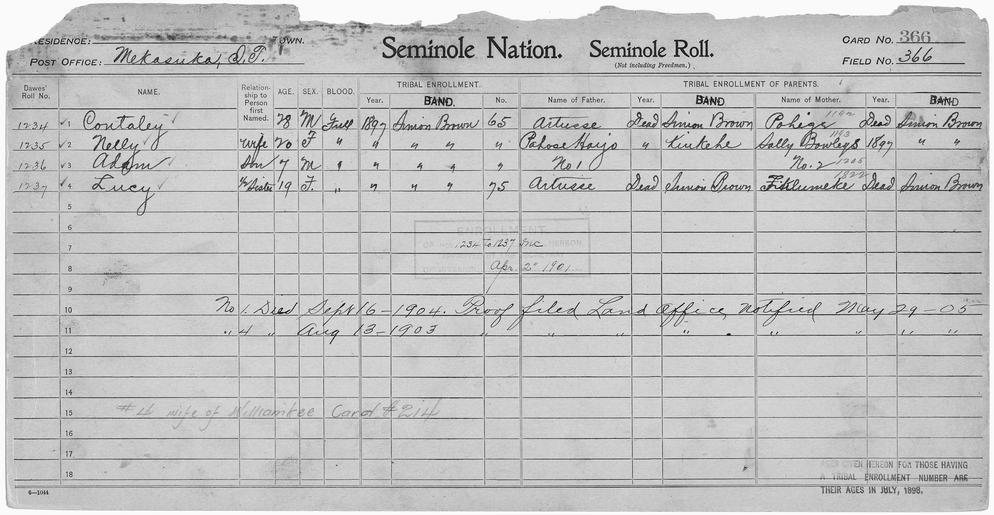 RESIDENCE: TOWN.
POST OFFICE: Mekasuka, I.T.
Seminole Nation. Seminole Roll.
(Not including Freedmen.)
CARD NO. 366
FIELD NO. 366
Dawes' Roll No. NAME. Relationship to Person first Named. AGE. SEX. BLOOD. TRIBAL ENROLLMENT. TRIBAL ENROLLMENT OF PARENTS.
Year. BAND. No. Name of Father. Year. BAND Name of Mother. Year. BAND
1234 1 Contaley 28 M Full 1897 Simon Brown 65 Artusse Dead Simon Brown Dead Simon Brown
1235 2 Nelly Wife 20 F " " " " " Pahose Harjo " Sally Bowlegs 1897 " "
1236 3 Adam Son 7 M " " " " " " No 1 No. 2
1237 4 Lucy ½ Sister 19 F. " " " " 75 Artusse Dead Simon Brown Dead Simon Brown
5
6
ENROLLMENT
7 1234 to 1237 Inc
HEREON
8 Apr. 2" 1901
9
10 No 1. Died Sept 16-1904. Proof filed Land Office, notified May 29-05
11 " 4 " Aug 13-1903 " " " " " " " "
12
13
14
15 #4 wife of Williamkee Card #214
16
17
18
AGES GIVEN HEREON FOR THOSE HAVING
A TRIBAL ENROLLMENT NUMBER ARE
THEIR AGES IN JULY, 1898.
6—1044